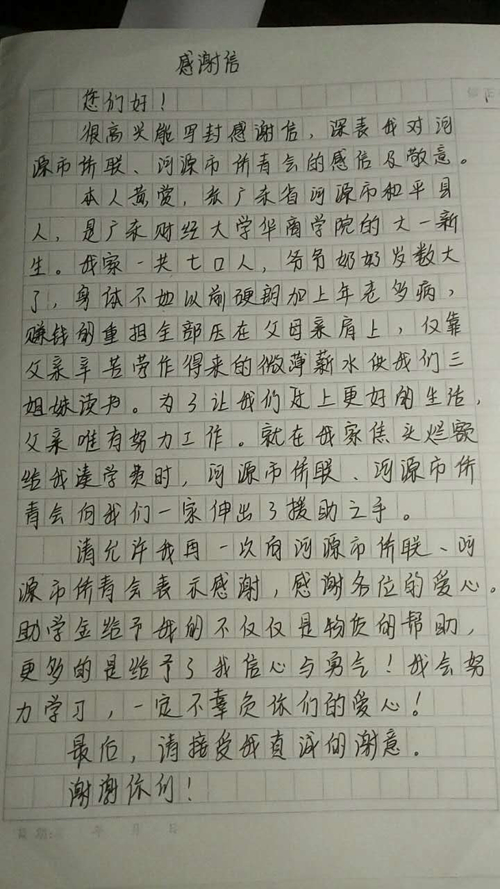 感谢信
您们好！
很高兴能写封感谢信，深表我对河
源市侨联、河源市侨青会的感信及敬意。
本人黄莹，广东省河源市和平县
人，是广东财经大学华商学院的大一新
生。我家一共七口人，爷爷奶奶岁数大
了，身体不如以前硬朗加上年老多病，
赚钱的重担全部压在父母亲肩上，仅靠
父亲辛苦劳作得来的微薄薪水供我们三
姐妹读书。为了让我们过上更好的生活，
父亲唯有努力工作。就在我家焦头烂额
给我凑学费时，河源市侨联、河源市侨
青会向我们一家伸出了援助之手。
请允许我再一次向河源市侨联、河
源市侨青会表示感谢，感谢各位的爱心。
助学金给予我的不仅仅是物质的帮助，
更多的是给予了我信心与勇气！我会努
力学习，一定不辜负你们的爱心！
最后，请接受我真诚的谢意。
谢谢你们！
年 月 日